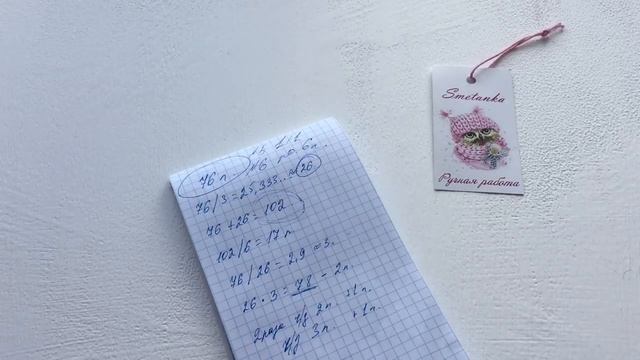 76 п.
6 п.
76/3 = 25,333.. ≈ 26
76 + 26 = 102
102/6 = 17 п.
76/26 = 2,9 ≈ 3.
26 · 3 = 78 - 2п.
2 раза ч/з 2п. +1п.
ч/з 3п. +1п.
Smetanka
Ручная работа